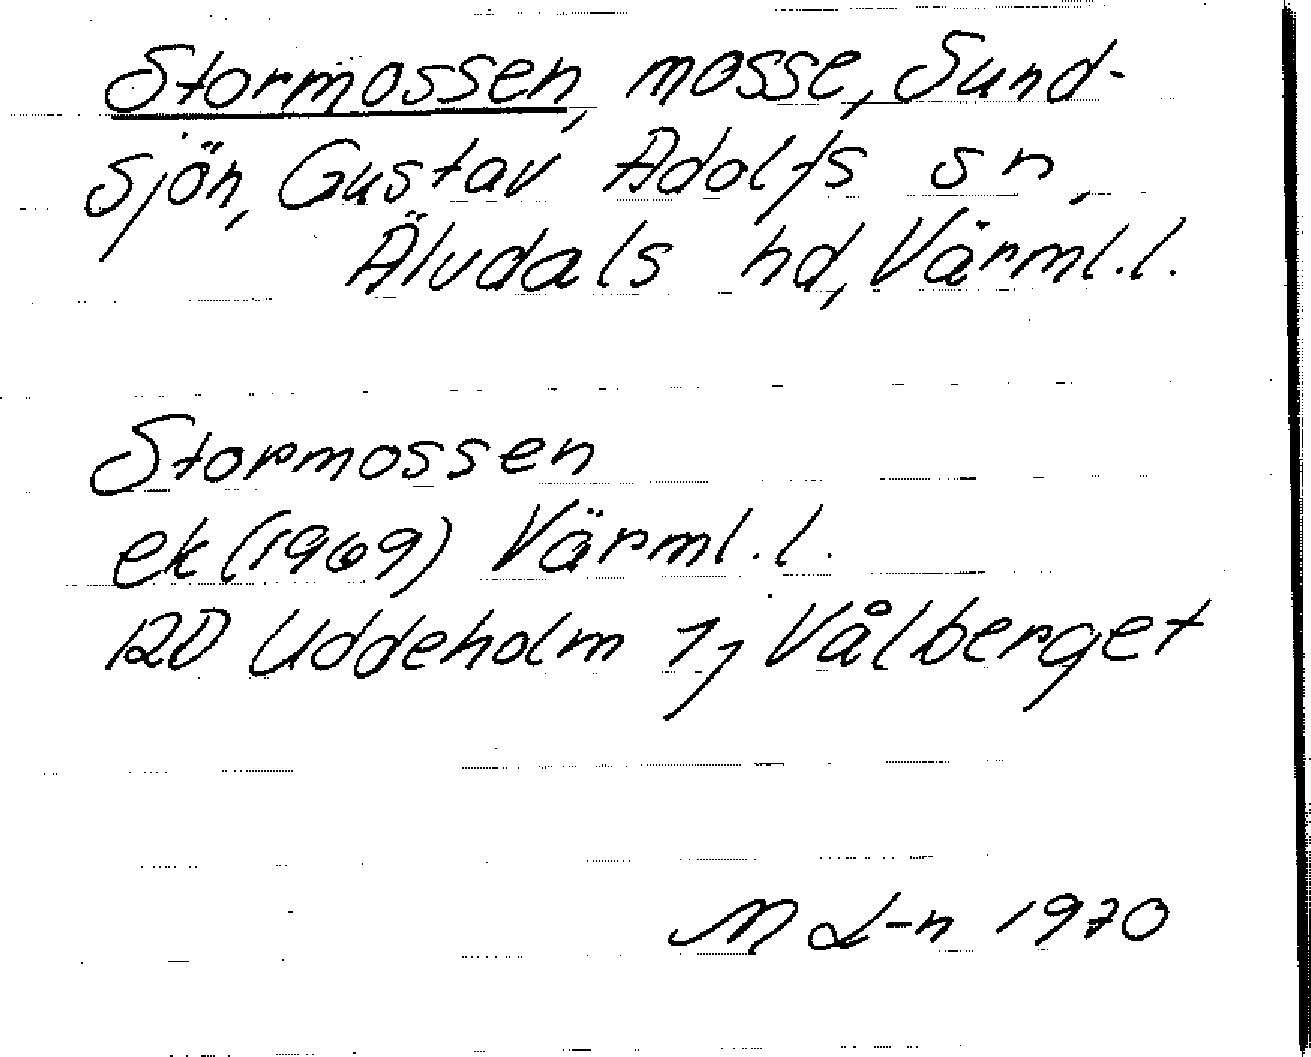 Stormossen, mosse, Sund-
sjön, Gustav Adolfs sn,
Älvdals hd, Värml.l.
Stormossen
ek (1969) Värml.l.
RD Uddeholm 1j Vålberget
M L-n 1970